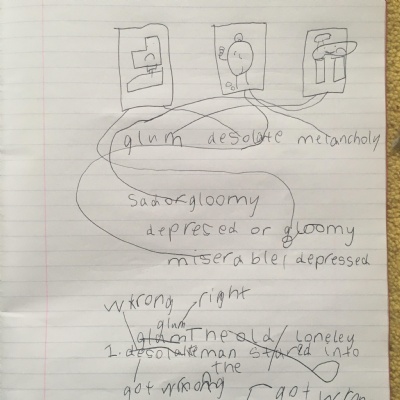 glum desolate melancholy
sad or gloomy
depresed or gloomy
miserable, depressed
wrong right
glum
glum The old/ loneley
1. desolate man stared into
the
got wroong
got wrn